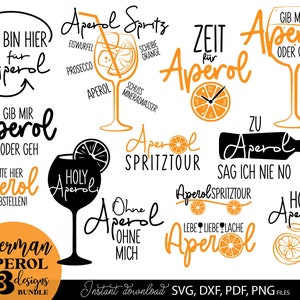 BIN HIER
für
Aperol
Aperol Spritz
EISWÜRFEL
SCHEIBE
ORANGE
PROSECCO
APEROL
SCHUSS
MINERALWASSER
ZEIT
für
Aperol
GIB MIR
Aperol
ODER GEH
GIB MIR
Aperol
ODER GEH
Aperol
SPRITZTOUR
ZU
Aperol
SAG ICH NIE NO
HOLY
Aperol
Aperol
Ohne
Aperol
OHNE
MICH
Aperol SPRITZTOUR
LEBE LIEBE LACHE
Aperol
German
APEROL
designs
BUNDLE
Instant download SVG, DXF, PDF, PNG FILES